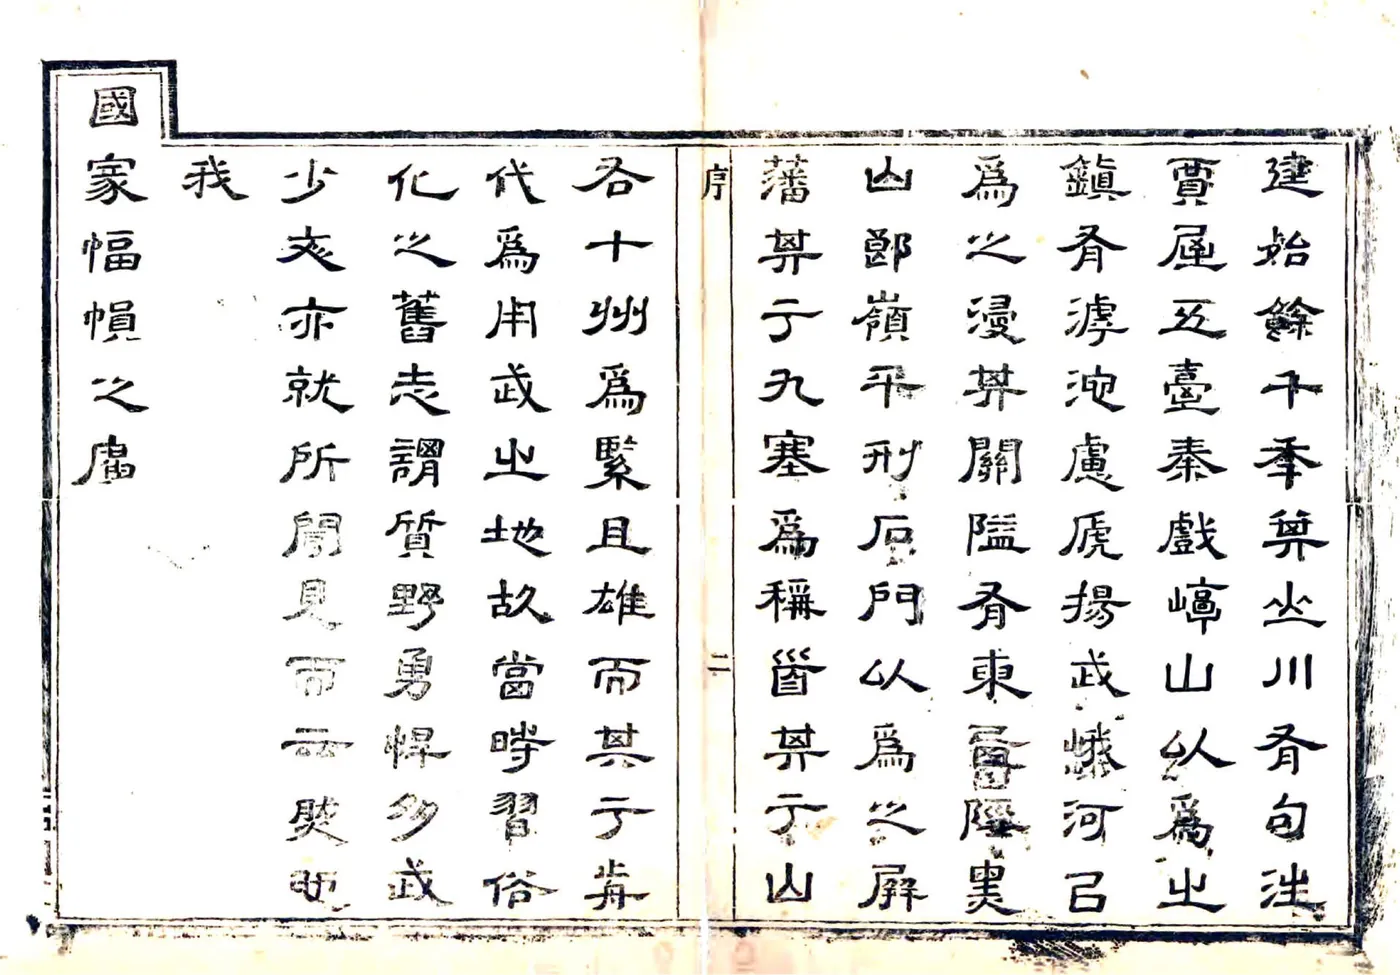 建始餘千秊其山川有句注
賈屋五臺秦戲崞山以爲之
鎮有滹沱慮虒揚武峨河㠯
爲之浸其關隘有東西陘婁
山郎嶺平刑石門以爲之屏
藩其于九塞爲稱首其于山
序
二
右十州爲緊且雄而其于前
代爲用武之地故當時習俗
化之舊志謂質野勇悍多武
少文亦就所聞見而云然
我
國家幅幀之廣